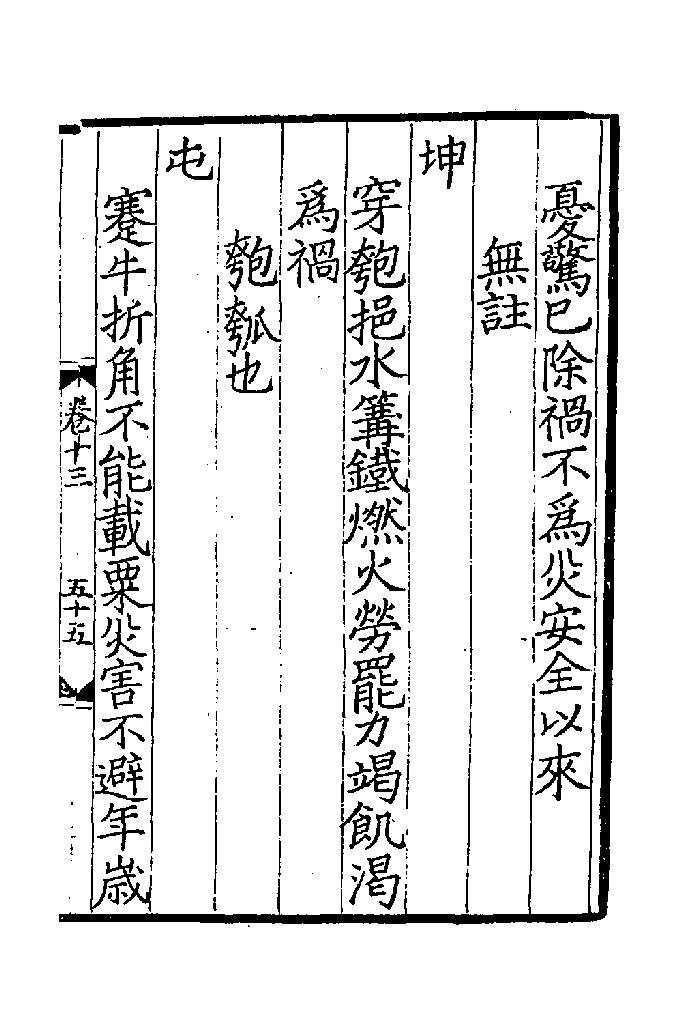 憂驚已除禍不為災安全以來
無註
坤
穿匏挹水篝鐵燃火勞罷力竭飢渴
為禍
匏瓠也
屯
蹇牛折角不能載粟災害不避年歲
卷十三
五十五